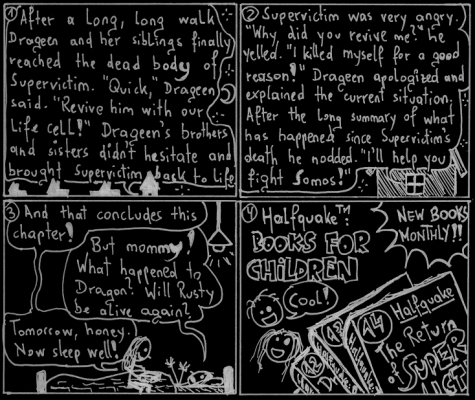 1 After a Long, Long walk
Drageen and her siblings finally
reached the dead body of
Supervictim. "Quick," Drageen
said. "Revive him with our
Life cell!" Drageen's brothers
and sisters didn't hesitate and
brought Supervictim back to life
2 Supervictim was very angry.
"Why did you revive me?" he
yelled. "I killed myself for a good
reason!" Drageen apologized and
explained the current situation.
After the Long summary of what
has happened since Supervictim's
death he nodded. "I'll help you
fight Somos!"
3 And that concludes this
chapter!
But mommy!
What happened to
Dragon? Will Rusty
be alive again?
Tomorrow, honey.
Now sleep well!
4 Halfquake™:
BOOKS FOR
CHILDREN
NEW BOOKS
MONTHLY!!
Cool!
A4 Halfquake
The Return
of SUPER